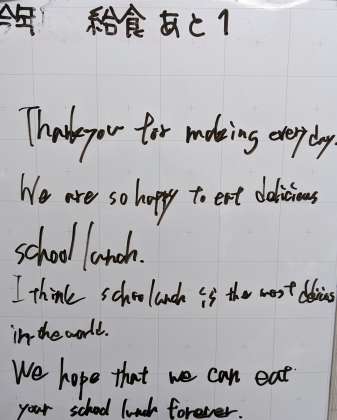 給食 あと1
Thank you for making every day.
We are so happy to eat delicious
school lunch.
I think school lunch is the most delicious
in the world.
We hope that we can eat
your school lunch forever.